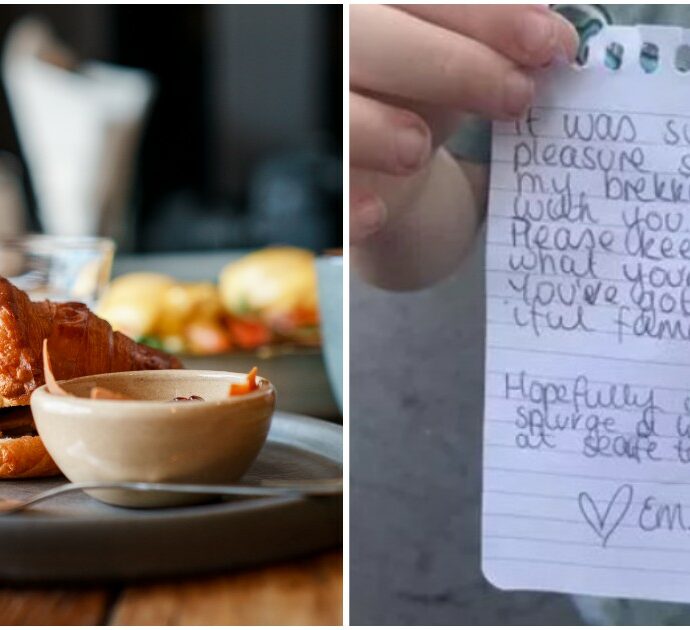 It was su
pleasure s
my brekk
with you
Please kee
what your
You've got
iful fam
Hopefully
splurge a w
at seate t
Em